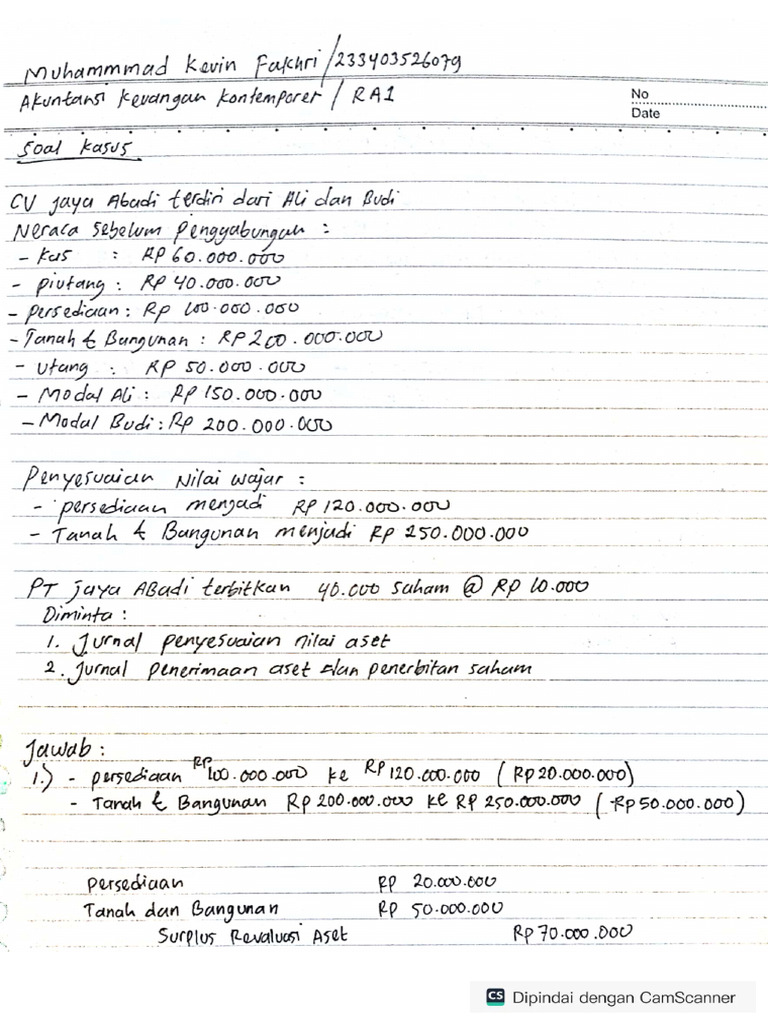 Muhammmad Kevin Fakhri/233403526079
Akuntansi Keuangan Kontemporer / RA1
No
Date
Soal Kasus
CV Jaya Abadi terdiri dari Ali dan Budi
Neraca Sebelum Penggabungan :
- Kas : RP 60.000.000
- piutang : RP 40.000.000
- persediaan : Rp 100.000.000
- Tanah & Bangunan : RP 200.000.000
- Utang : RP 50.000.000
- Modal Ali : RP 150.000.000
- Modal Budi : Rp 200.000.000
Penyesuaian Nilai Wajar :
- persediaan menjadi RP 120.000.000
- Tanah & Bangunan menjadi RP 250.000.000
PT Jaya Abadi terbitkan 40.000 saham @ Rp 10.000
Diminta :
1. Jurnal penyesuaian nilai aset
2. Jurnal penerimaan aset dan penerbitan saham
Jawab :
1.) - persediaan RP 100.000.000 ke RP 120.000.000 ( RP 20.000.000)
- Tanah & Bangunan RP 200.000.000 ke RP 250.000.000 ( RP 50.000.000)
Persediaan RP 20.000.000
Tanah dan Bangunan RP 50.000.000
Surplus Revaluasi Aset RP 70.000.000
CS Dipindai dengan CamScanner